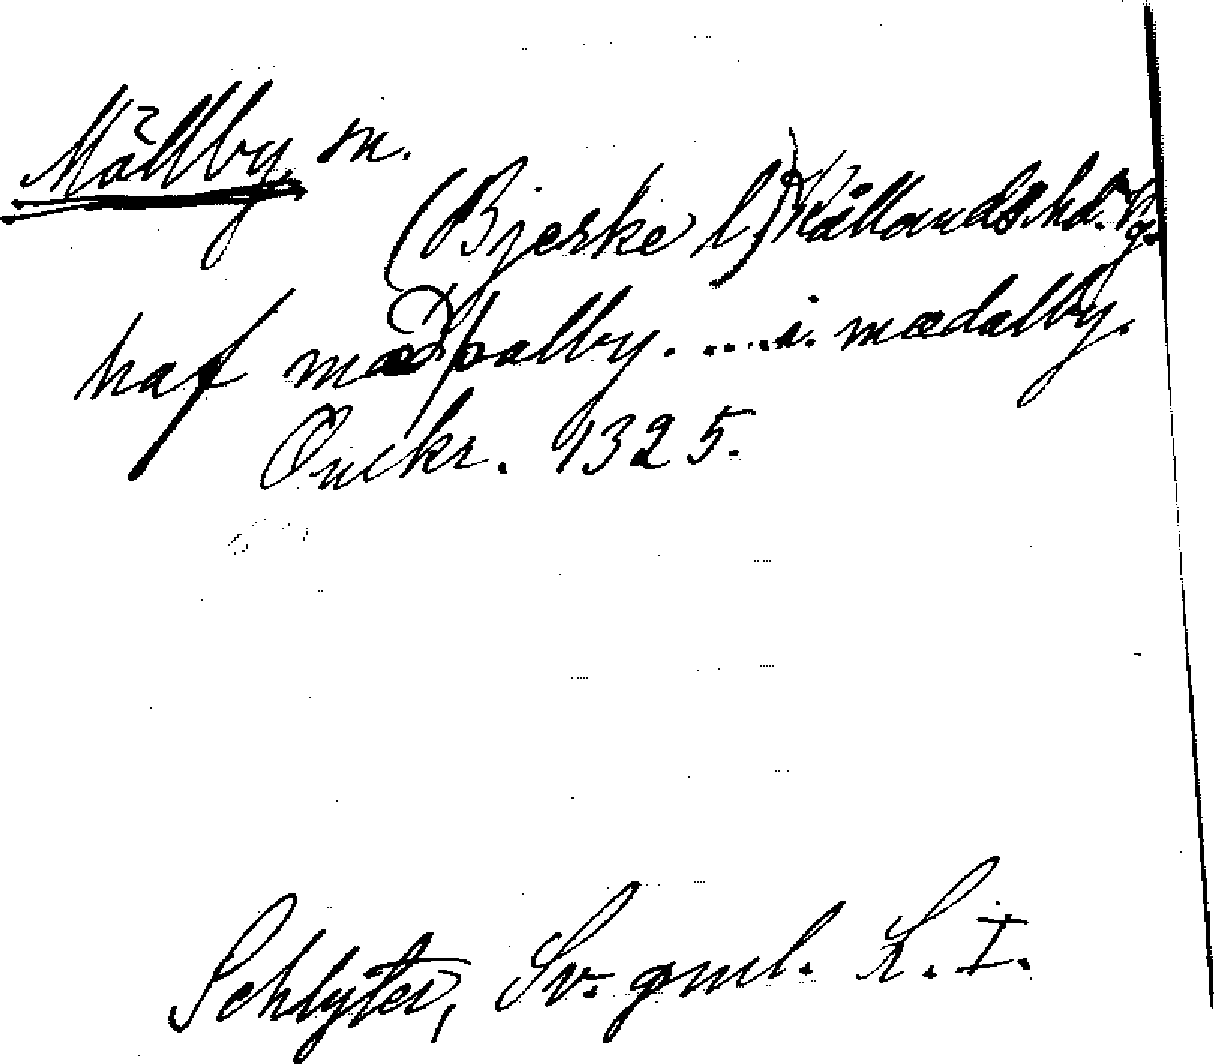 Mällby, m.
(Bjerke l) Kållands hd. Vg.
haf mædhalby. .... i. mædalby.
Omkr. 1325.
Schlyter, Sv. gml. L. I.